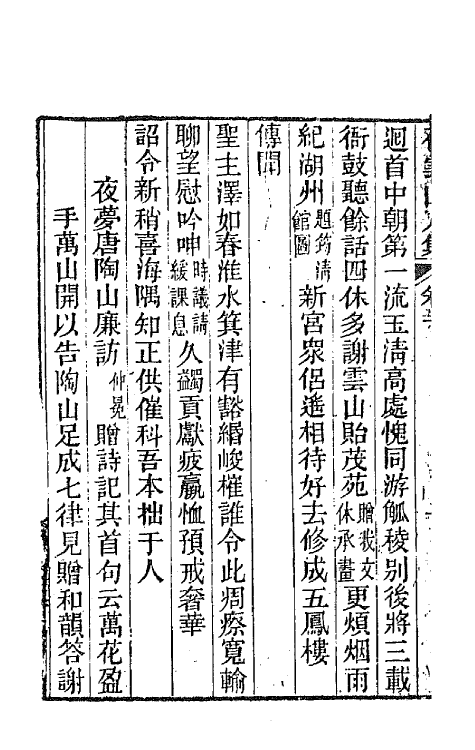 迴首中朝第一流玉淸高處愧同游觚稜别後將三載
衙鼓聽餘話四休多謝雲山貽茂苑贈我文休承畫更煩烟雨
紀湖州題筠淸館圖新宮衆侶遙相待好去修成五鳳樓
傳聞
聖主澤如春淮水箕津有豁緡峻榷誰令此痌瘝寬輸
聊望慰吟呻時議請緩課息久蠲貢獻疲羸恤預戒奢華
詔令新稍喜海隅知正供催科吾本拙于人
夜夢唐陶山廉訪仲冕贈詩記其首句云萬花盈
手萬山開以告陶山足成七律見贈和韻答謝